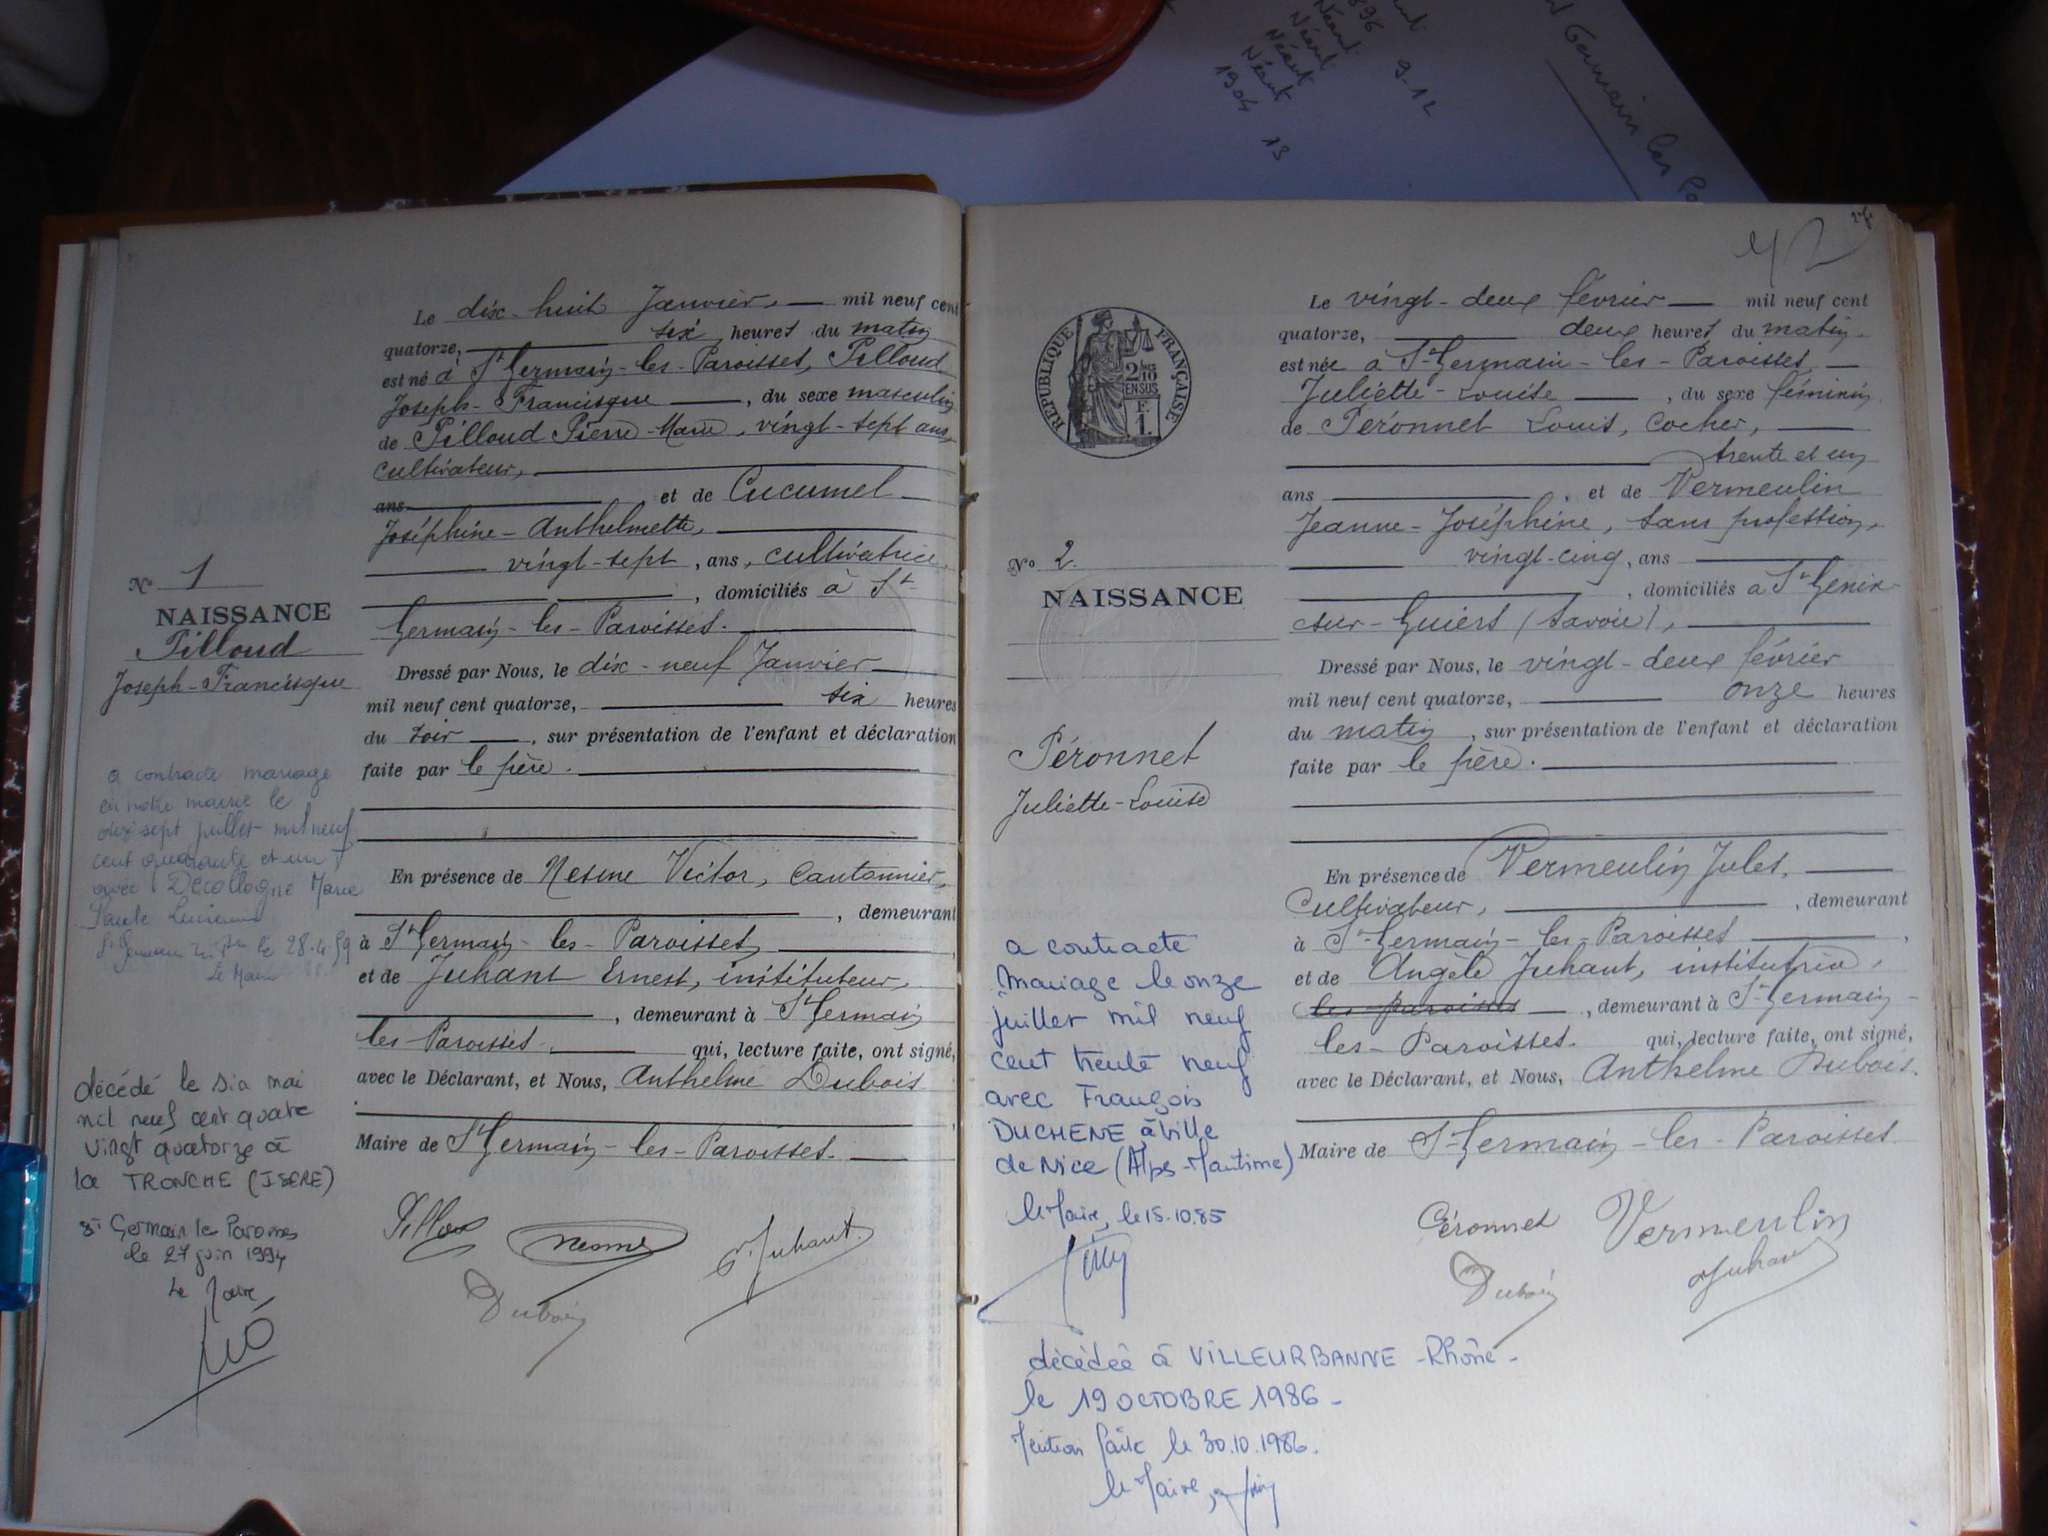 9.12
1904 13
Néant
Néant
Néant
Néant
Germain les Pa
Le dix-huit Janvier, mil neuf cent
quatorze, six heures du matin
est né à St Germain-les-Paroisses, Pilloud
Joseph-Francisque, du sexe masculin
de Pilloud Pierre-Marie, vingt-sept ans,
cultivateur,
ans et de Cucumel
Joséphine-Anthelmette,
vingt-sept, ans, cultivatrice
, domiciliés à St
Germain-les-Paroisses.
Dressé par Nous, le dix-neuf Janvier
mil neuf cent quatorze, six heures
du soir, sur présentation de l'enfant et déclaration
faite par le père.
En présence de Nesme Victor, Cantonnier,
, demeurant
à St Germain-les-Paroisses,
et de Juhant Ernest, instituteur,
, demeurant à St Germain
les Paroisses. qui, lecture faite, ont signé,
avec le Déclarant, et Nous, Anthelme Dubois
Maire de St Germain-les-Paroisses.
Pilloud Nesme E. Juhant.
Dubois
No 1
NAISSANCE
Pilloud
Joseph-Francisque
a contracté mariage
en notre mairie le
dix sept juillet mil neuf
cent quarante et un
avec Decollogne Marie
Paule Lucienne
le 28.4.59
Le Maire
décédé le six mai
mil neuf cent quatre
vingt quatorze à
la TRONCHE (ISERE)
St Germain les Paroisses
le 27 juin 1994
Le Maire,
2
No 2.
NAISSANCE
REPUBLIQUE FRANÇAISE
2/10 EN SUS
F. 1.
Péronnet
Juliette-Louise
a contracté
mariage le onze
juillet mil neuf
cent trente neuf
avec François
DUCHENE à Ville
de Nice (Alpes-Maritime)
le Maire, le 15.10.85
décédée à VILLEURBANNE -Rhône-
le 19 OCTOBRE 1986-
Mention faite le 30.10.1986.
le Maire,
Le vingt-deux février mil neuf cent
quatorze, deux heures du matin
est née à St Germain-les-Paroisses,
Juliette-Louise, du sexe féminin
de Péronnet Louis, cocher,
trente et un
ans, et de Vermeulin
Jeanne-Joséphine, sans profession,
vingt-cinq, ans
, domiciliés à St Genix
sur-Guiers (Savoie),
Dressé par Nous, le vingt-deux février
mil neuf cent quatorze, onze heures
du matin, sur présentation de l'enfant et déclaration
faite par le père.
En présence de Vermeulin Jules,
Cultivateur, , demeurant
à St Germain-les-Paroisses,
et de Angèle Juhant, institutrice,
les paroisses, demeurant à St Germain-
les-Paroisses. qui, lecture faite, ont signé,
avec le Déclarant, et Nous, Anthelme Dubois.
Maire de St Germain-les-Paroisses
Péronnet Vermeulin
Dubois Juhant